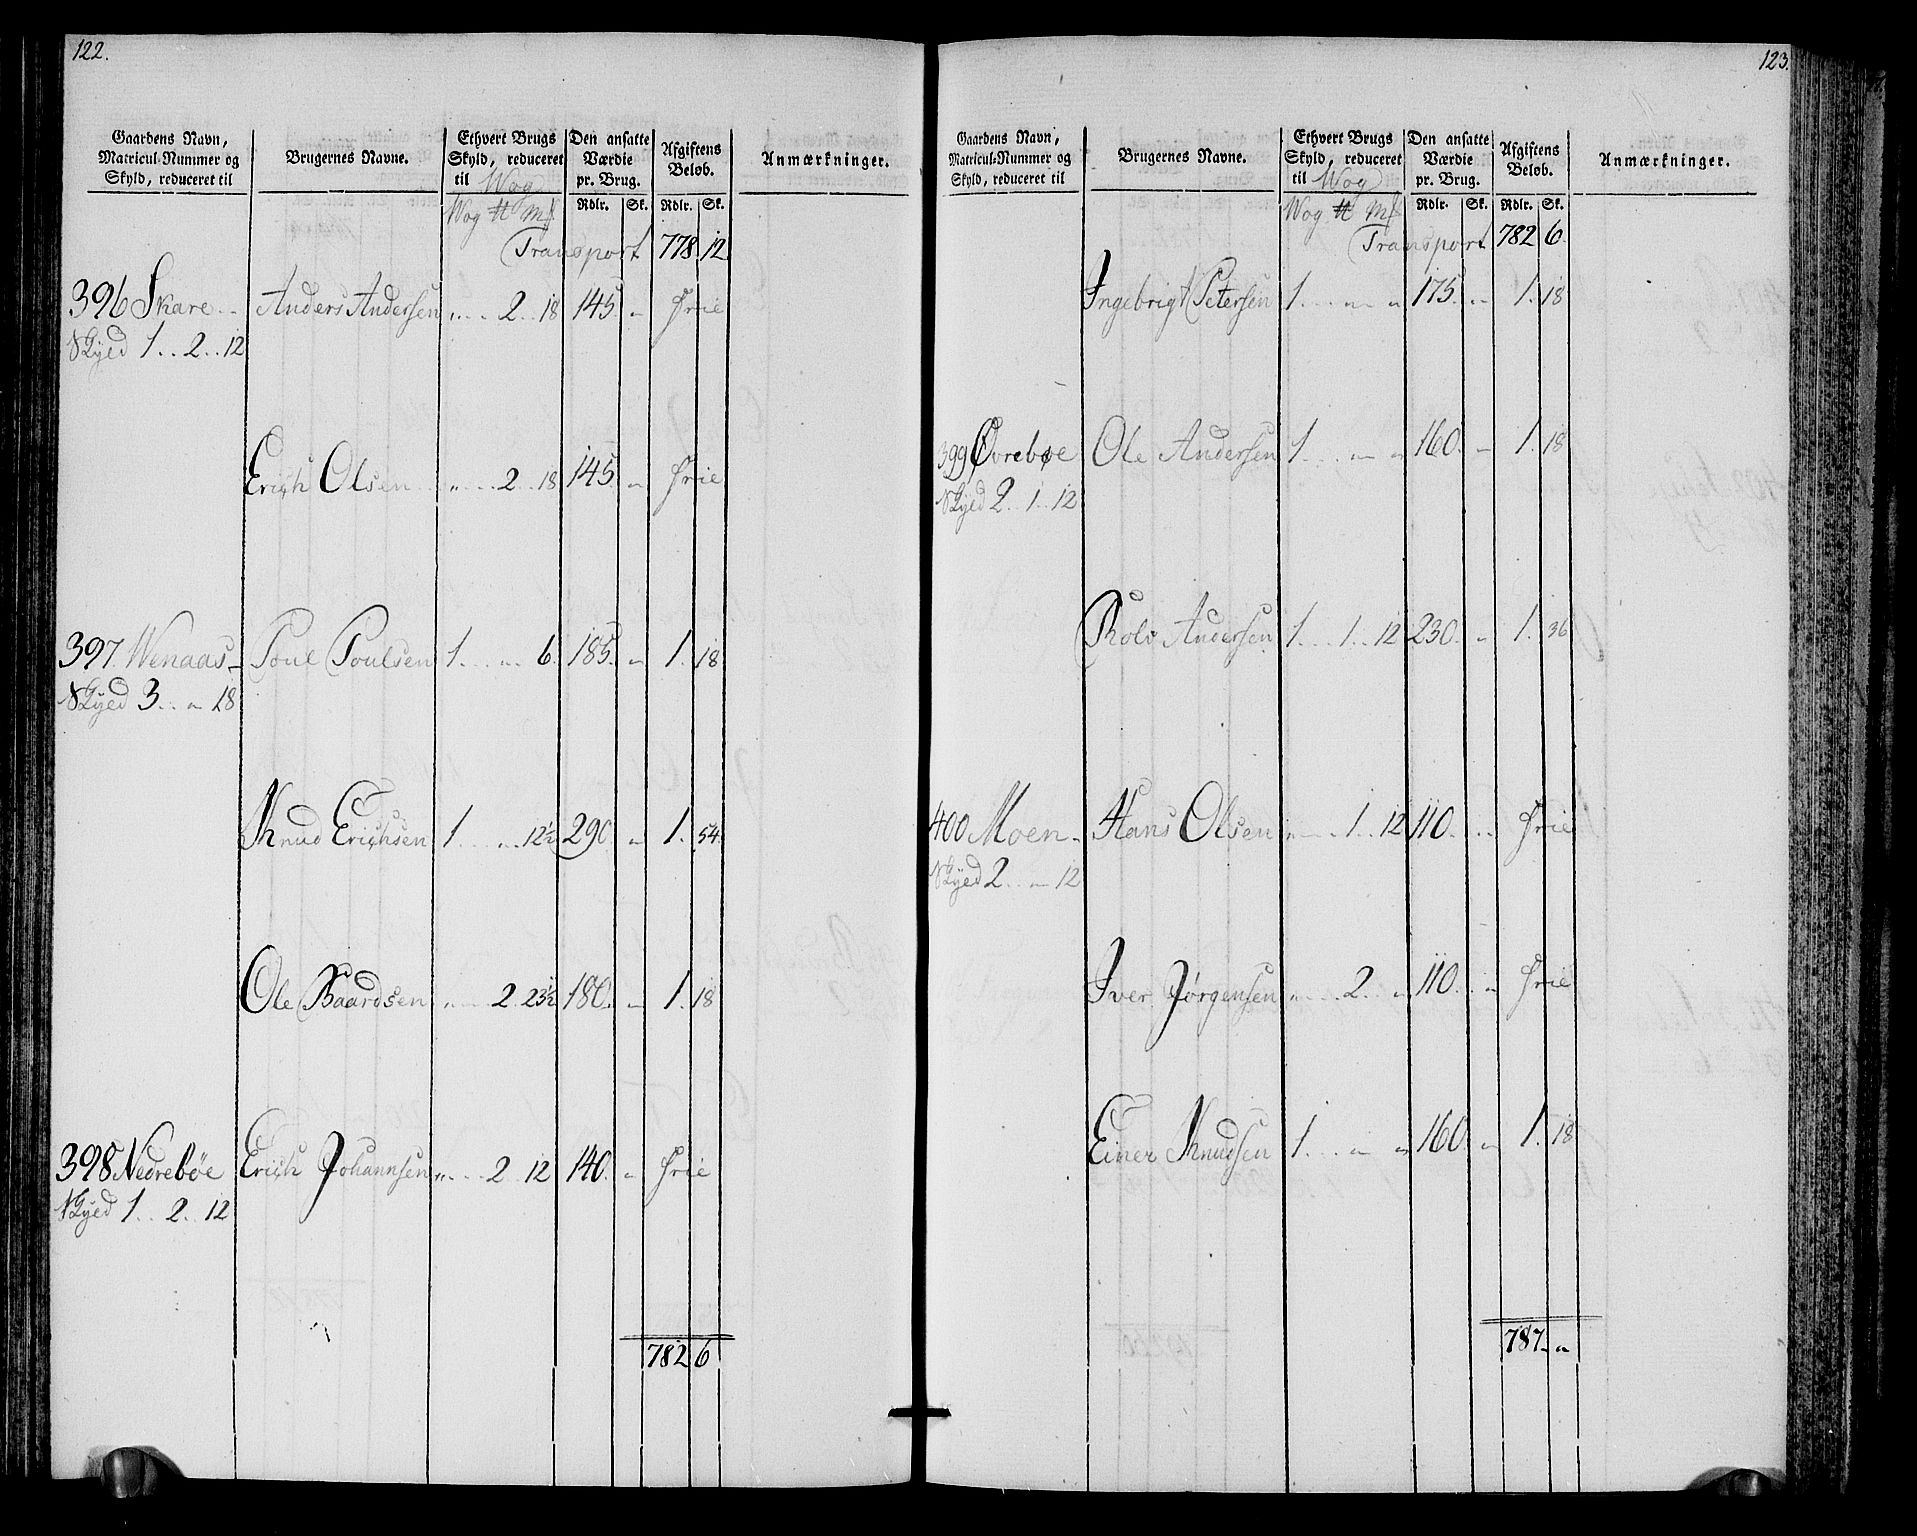 122.
Gaardens Navn, Matricul-Nummer og Skyld, reduceret til
Brugernes Navne.
Ethvert Brugs Skyld, reduceret til Wog
Den ansatte Værdie pr. Brug.
Afgiftens Beløb.
Anmærkninger.
Wog ℔ Mk Rdlr. Sk. Rdlr. Sk.
Transport 778 12
396 Skare .. Anders Andersen „ .... 2 .. 18 145. „ Frie
Skyld 1 .. 2 .. 12
Erich Olsen „ .... 2 .. 18 145 „ Frie
397. Wenaas - Poul Poulsen 1 ... „ .. 6. 185. „ 1. 18
Skyld 3 .. „ 18
Knud Erichsen 1 .... „ .. 12½ 290. „ 1. 54.
Ole Baardsen „ .... 2. 23½ 180. „ 1. 18
398 Nedrebøe Erich Johannsen „ .... 2 .. 12 140. „ Frie
Skyld 1 .. 2 .. 12
782 6
123.
Gaardens Navn, Matricul-Nummer og Skyld, reduceret til
Brugernes Navne.
Ethvert Brugs Skyld, reduceret til Wog
Den ansatte Værdie pr. Brug.
Afgiftens Beløb.
Anmærkninger.
Wog ℔ Mk Rdlr. Sk. Rdlr. Sk.
Transport 782 6.
Ingebrigt Petersen 1 .... „ .. „ 175. .. 1. 18
399 Øvrebøe Ole Andersen 1 .... „ .. „ 160. „ 1. 18
Skyld 2 .. 1 .. 12
Rolv Andersen 1 .... 1 .. 12 230. „ 1. 36
400 Moen - Hans Olsen „ .... 1 .. 12 110. .. Frie
Skyld 2 .. „ 12
Iver Jørgensen „ .... 2 .. „ 110. .. „ Frie
Einer Knudsen 1 .... „ „ 160 „ 1. 18
787 - „